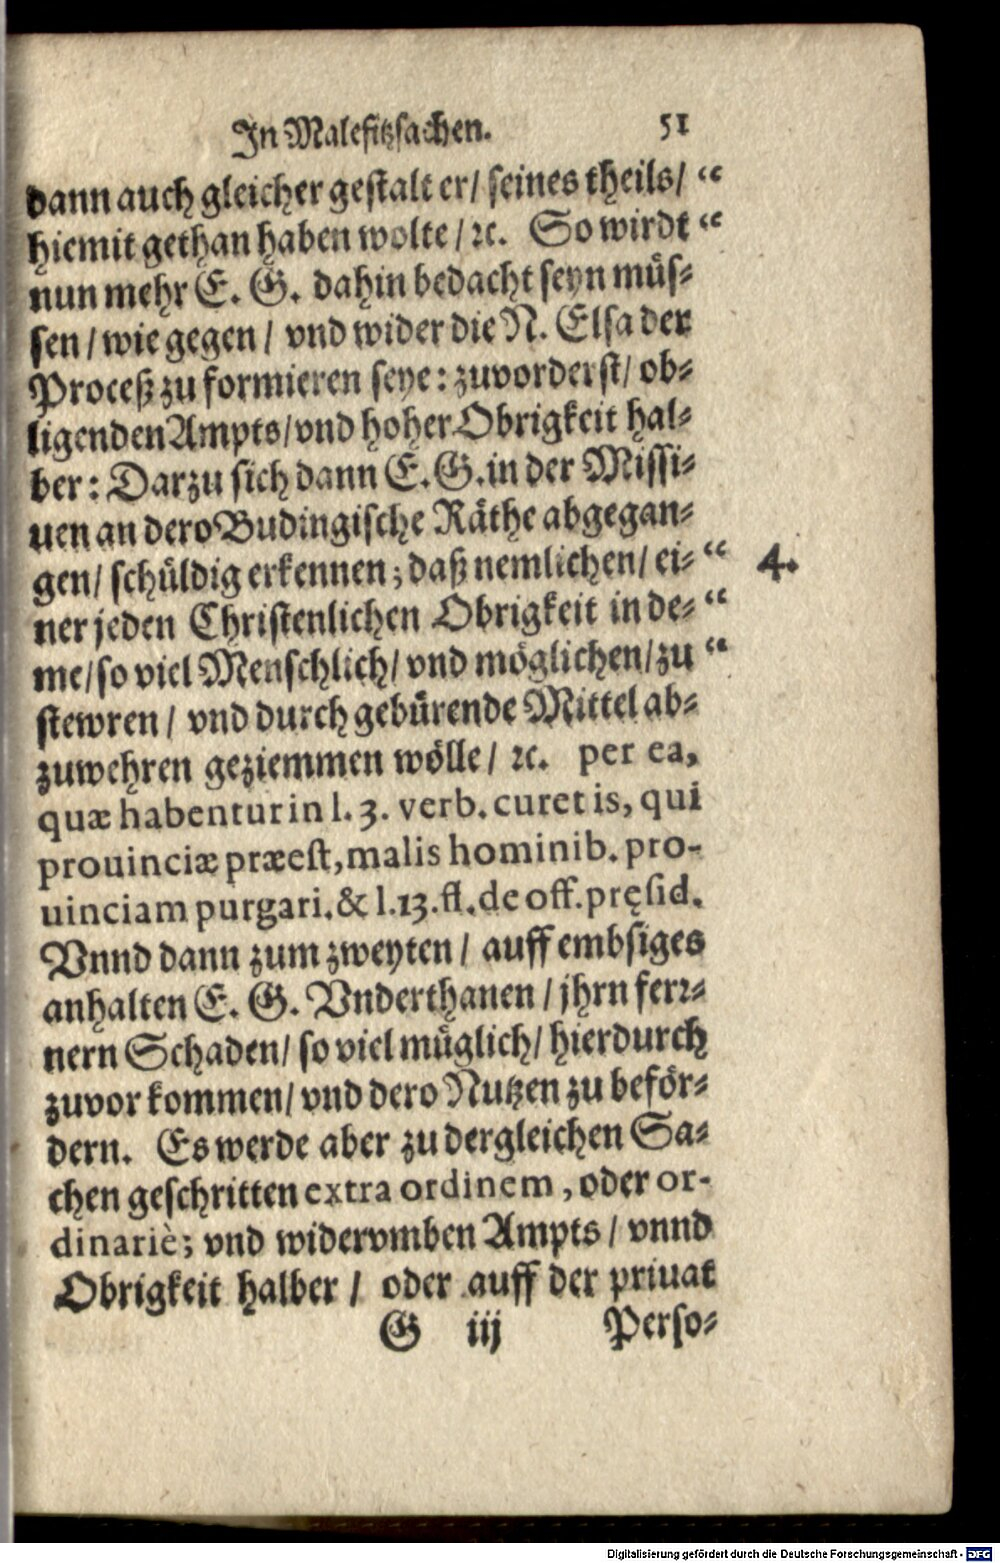 In Malefitzsachen. 51
dann auch gleicher gestalt er/ seines theils/ “
hiemit gethan haben wolte/ ꝛc. So wirdt “
nun mehr E. G. dahin bedacht seyn müs⸗
sen/ wie gegen/ vnd wider die N. Elsa der
Proceß zu formieren seye: zuvorderst/ ob⸗
ligenden Ampts/ vnd hoher Obrigkeit hal⸗
ber: Darzu sich dann E. G. in der Missi⸗
uen an dero Budingische Räthe abgegan⸗
gen/ schüldig erkennen; daß nemlichen/ ei⸗ “ 4.
ner jeden Christenlichen Obrigkeit in de⸗ “
me/ so viel Menschlich/ vnd möglichen/ zu “
stewren/ vnd durch gebürende Mittel ab⸗
zuwehren geziemmen wölle/ ꝛc. per ea,
quæ habentur in l. 3. verb. curet is, qui
prouinciæ præest, malis hominib. pro-
uinciam purgari. & l. 13. ff. de off. pręsid.
Vnnd dann zum zweyten/ auff embsiges
anhalten E. G. Vnderthanen/ jhrn ferꝛ⸗
nern Schaden/ so viel müglich/ hierdurch
zuvor kommen/ vnd dero Nutzen zu beför⸗
dern. Es werde aber zu dergleichen Sa⸗
chen geschritten extra ordinem, oder or-
dinariè; vnd widervmben Ampts/ vnnd
Obrigkeit halber/ oder auff der priuat
G iij Perso⸗
Digitalisierung gefördert durch die Deutsche Forschungsgemeinschaft - DFG